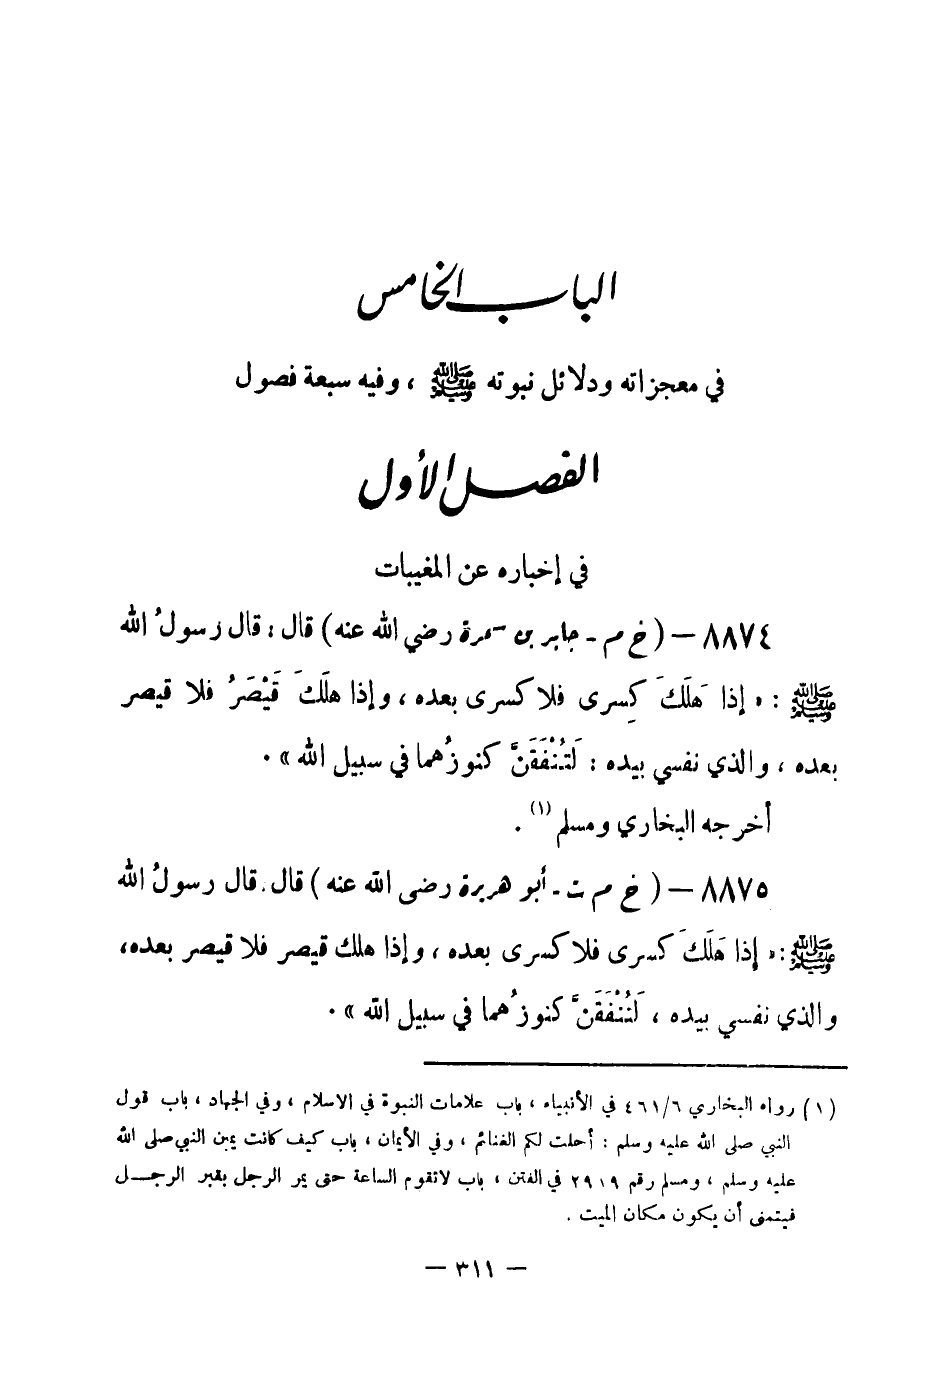 الباب الخامس
في معجزاته ودلائل نبوته ﷺ ، وفيه سبعة فصول
الفصل الأول
في إخباره عن المغيبات
٨٨٧٤ — ( خ م - جابر بن سمرة رضي الله عنه ) قال : قال رسولُ الله
ﷺ : « إذا هَلَكَ كِسرى فلا كسرى بعده ، وإذا هلَكَ قَيْصَرُ فلا قيصر
بعده ، والذي نفسي بيده : لَتُنْفَقَنَّ كنوزُهما في سبيل الله » .
أخرجه البخاري ومسلم (١) .
٨٨٧٥ — ( خ م ت - أبو هريرة رضى الله عنه ) قال . قال رسولُ الله
ﷺ : « إذا هَلَكَ كسرى فلا كسرى بعده ، وإذا هلك قيصر فلا قيصر بعده،
والذي نفسي بيده ، لَتُنْفَقَنَّ كنوزُهما في سبيل الله » .
(١) رواه البخاري ٤٦١/٦ في الأنبياء ، باب علامات النبوة في الاسلام ، وفي الجهاد ، باب قول
النبي صلى الله عليه وسلم : أحلت لكم الغنائم ، وفي الأيمان ، باب كيف كانت يمين النبي صلى الله
عليه وسلم ، ومسلم رقم ٢٩١٩ في الفتن ، باب لاتقوم الساعة حتى يمر الرجل بقبر الرجل
فيتمنى أن يكون مكان الميت .
— ٣١١ —